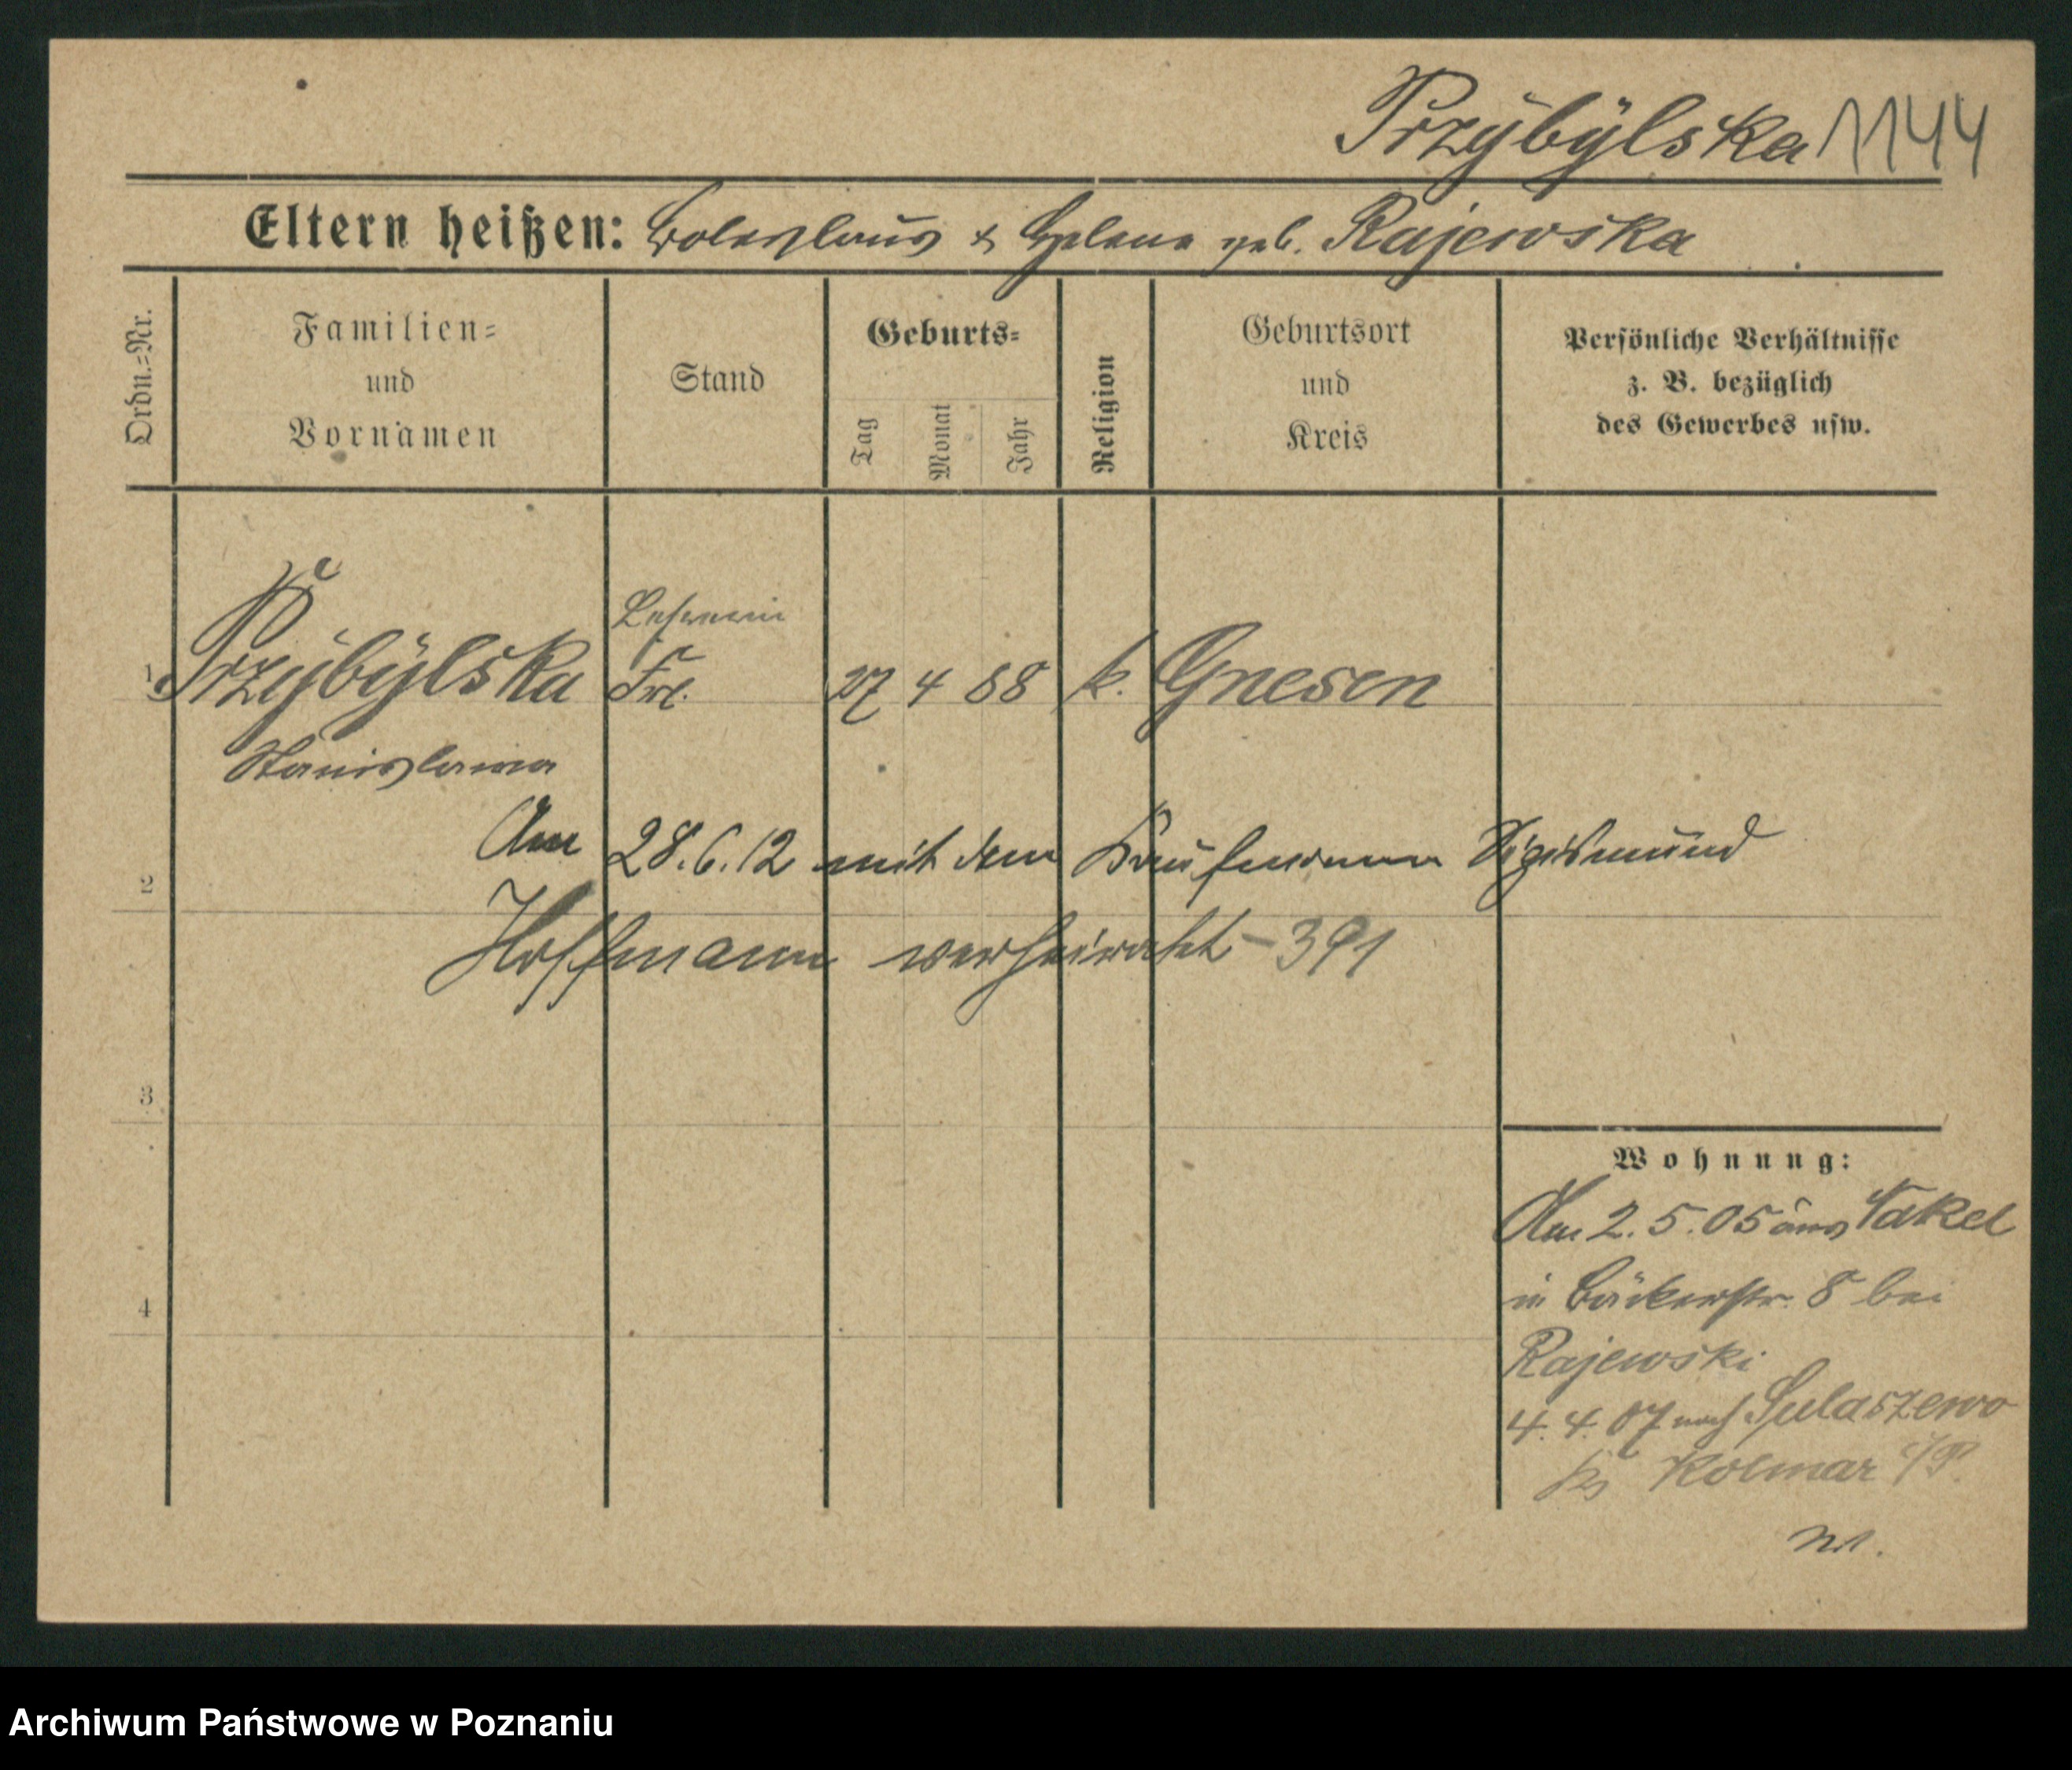 Przybylska 1144
Eltern heißen: Boleslaus & Helene geb. Rajewska
Ordn.=Nr.
Familien=
und
Vornamen
Stand
Geburts=
Tag
Monat
Jahr
Religion
Geburtsort
und
Kreis
Persönliche Verhältnisse
z. B. bezüglich
des Gewerbes usw.
Lehrerin
1 Przybylska Frl. 27 4 88 k. Gnesen
Stanislawa
Am 28.6.12 mit dem Kaufmann Sigismund
2
Hoffmann verheiratet - 391
3
Wohnung:
Am 2.5.05 aus Nakel
in Bäckerstr. 8 bei
4
Rajewski
4.4.07 nach Sulaszewo
Kolmar i/P.
Archiwum Państwowe w Poznaniu